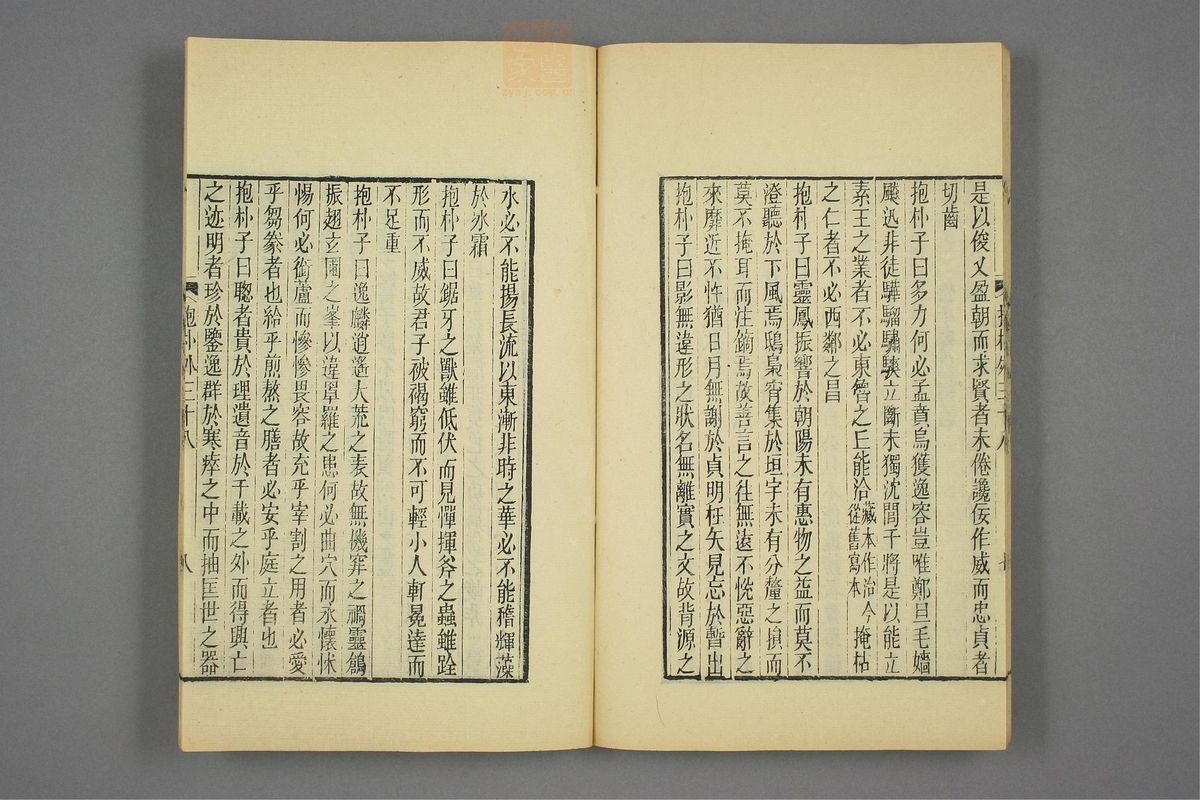 是以俊乂盈朝而求賢者未倦讒佞作威而忠貞者
切齒
抱朴子曰多力何必孟賁烏獲逸容豈唯鄭旦毛嬙
飈迅非徒驊騮騄騏立斷未獨沈閭干將是以能立
素王之業者不必東魯之丘能洽藏本作治今從舊寫本掩枯
之仁者不必西鄰之昌
抱朴子曰靈鳳振響於朝陽未有惠物之益而莫不
澄聽於下風焉鴟梟宵集於垣宇未有分釐之損而
莫不掩耳而注鏑焉故善言之往無遠不悅惡辭之
來靡近不忤猶日月無謝於貞明枉矢見忘於暫出
抱朴子曰影無違形之狀名無離實之文故背源之
水必不能揚長流以東漸非時之華必不能稽輝藻
於冰霜
抱朴子曰鋸牙之獸雖低伏而見憚揮斧之蟲雖跧
形而不威故君子被褐窮而不可輕小人軒冕達而
不足重
抱朴子曰逸麟逍遙大荒之表故無機穽之禍靈鶬
振翅玄圃之峯以違罩羅之患何必曲穴而永懷怵
惕何必銜蘆而慘慘畏容故充乎宰割之用者必愛
乎芻豢者也給乎煎熬之膳者必安乎庭立者也
抱朴子曰聰者貴於理遺音於千載之外而得興亡
之迹明者珍於鑒逸群於寒瘁之中而抽匡世之器
抱朴外三十八
八